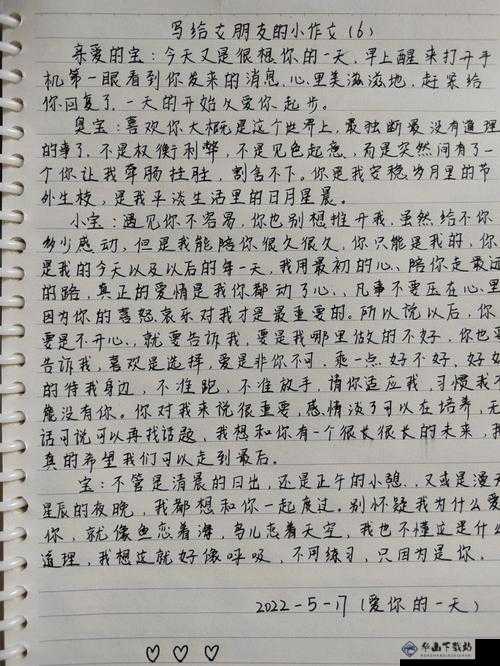 写给女朋友的小作文(6)
亲爱的宝:今天又是很想你的一天,早上醒来打开手
机第一眼看到你发来的消息,心里美滋滋地,赶紧给
你回复了,一天的开始久爱你起步。
臭宝:喜欢你大概是这个世界上,最独断最没有道理
的事了,不是权衡利弊,不是见色起意,而是突然间有了一
个你让我牵肠挂肚,割舍不下。你是我安稳岁月里的节
外生枝,是我平淡生活里的日月星晨。
小宝:遇见你不容易,你也别想推开我,虽然给不你
多少感动,但是我能陪你很久很久,你只能是我的,你
是我的今天以及以后的每一天,我用最初的心、陪你走最远
的路,真正的爱情是我你都动了心、凡事不要压在心里
因为你的喜怒哀乐对我才是最重要的。所以说以后,你
要是不开心,就要告诉我,要是我哪里做的不好,你也要
告诉我,喜欢是选择,爱是非你不可,乘一点好不好,好好
的待我身边,不准跑,不准放手,请你适应我,习惯我
能没有你。你对我来说很重要,感情淡了可以在培养,无
话可说可以再找话题,我想和你有一个很长很长的未来,我
真的希望我们可以走到最后。
宝:不管是清晨的日出,还是正午的小憩,又或是漫天
星辰的夜晚,我都想和你一起度过。别怀疑我为什么爱
你,就像鱼恋着海,鸟儿恋着天空,我也不懂这是什么
道理,我想这就好像呼吸,不用练习,只因为是你,
2022-5-17(爱你的一天)
华山下载站